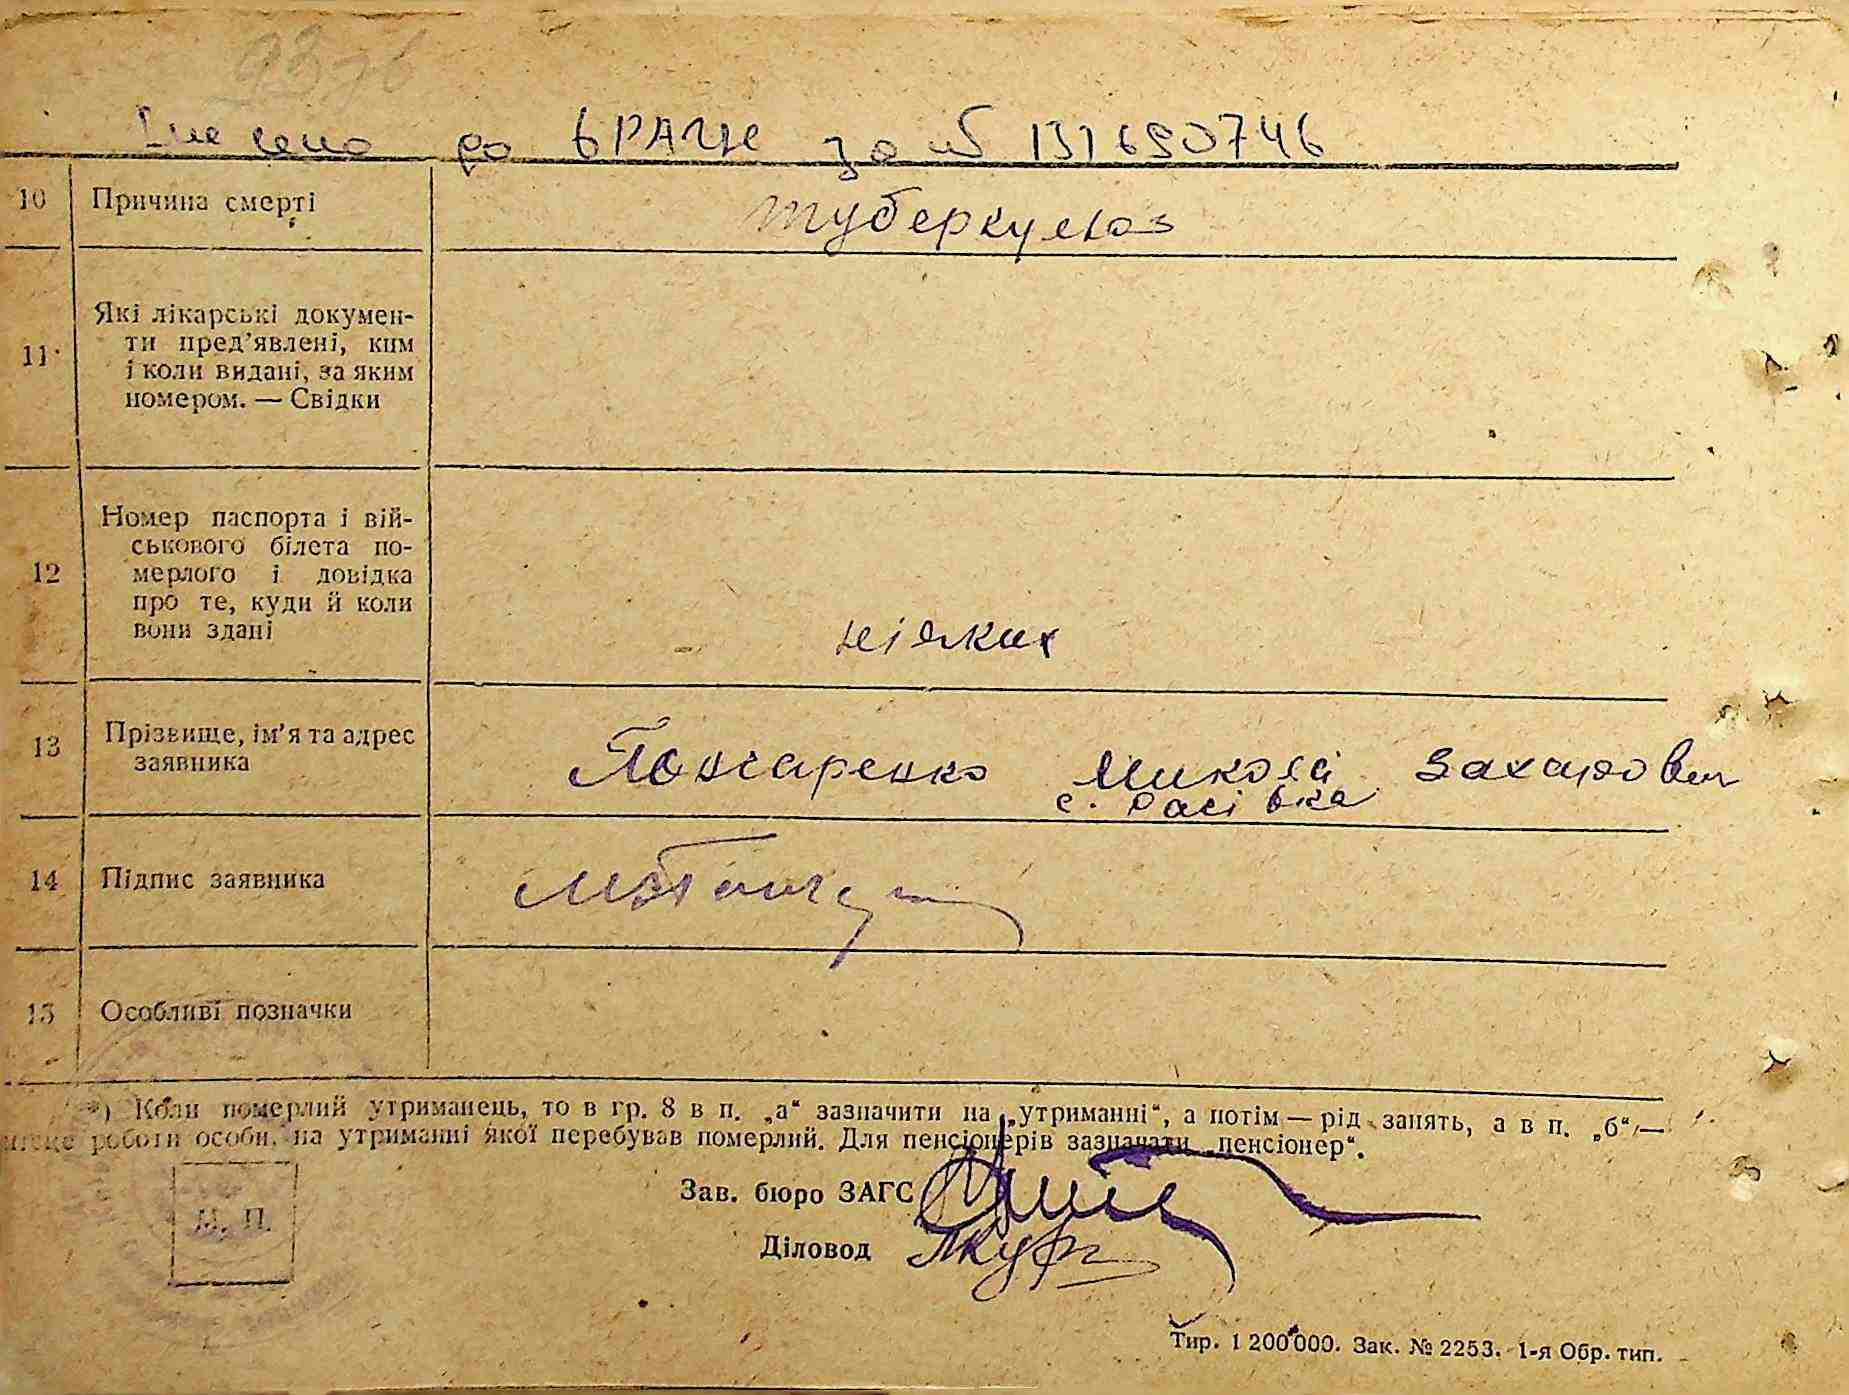 Внесено до ВРАЦС за № 131690746
10 Причина смерті туберкульоз
11 Які лікарські докумен-
ти пред'явлені, ким
і коли видані, за яким
номером. — Свідки
12 Номер паспорта і вій-
ськового білета по-
мерлого і довідка
про те, куди й коли
вони здані
ніяких
13 Прізвище, ім'я та адрес
заявника
Гончаренко Микола Захарович
с.
14 Підпис заявника
15 Особливі позначки
*) Коли померлий утриманець, то в гр. 8 в п. „а“ зазначити на „утриманні“, а потім — рід занять, а в п. „б“ —
місце роботи особи, на утриманні якої перебував померлий. Для пенсіонерів зазначати „пенсіонер“.
Зав. бюро ЗАГС
М. П.
Діловод
Тир. 1 200 000. Зак. № 2253. 1-я Обр. тип.